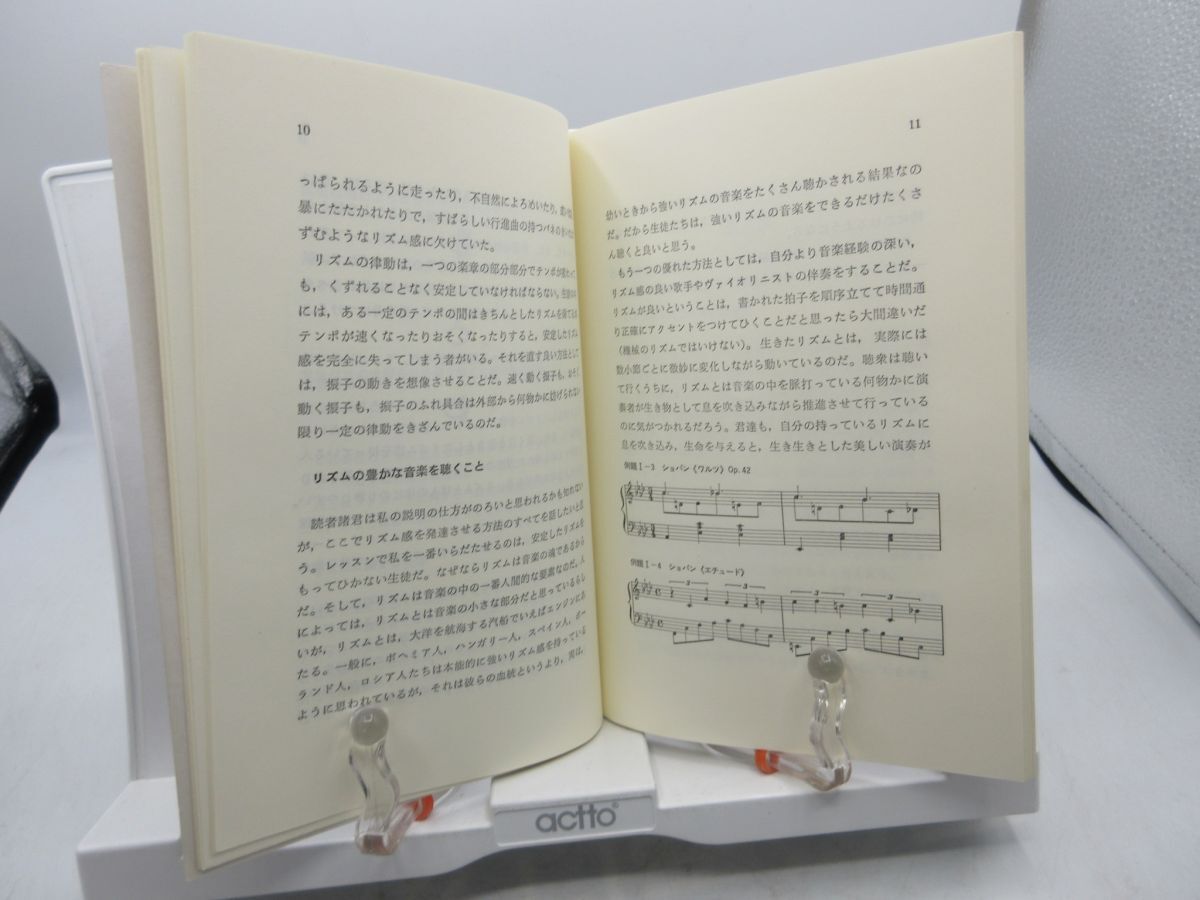 10
っぱられるように走ったり，不自然によろめいたり，
暴にたたかれたりで，すばらしい行進曲の持つバネの
ずむようなリズム感に欠けていた。
リズムの律動は，一つの楽章の部分部分でテンポが
も，くずれることなく安定していなければならない。生徒の
には，ある一定のテンポの間はきちんとしたリズムを
テンポが速くなったりおそくなったりすると，安定したリズム
感を完全に失ってしまう者がいる。それを直す良い方法として
は，振子の動きを想像させることだ。速く動く振子も，おそく
動く振子も，振子のふれ具合は外部から何物かに妨げられない
限り一定の律動をきざんでいるのだ。
リズムの豊かな音楽を聴くこと
読者諸君は私の説明の仕方がのろいと思われるかも知れない
が，ここでリズム感を発達させる方法のすべてを話したいと思
う。レッスンで私を一番いらだたせるのは，安定したリズムを
もってひかない生徒だ。なぜならリズムは音楽の魂であるから
だ。そして，リズムは音楽の中の一番人間的な要素なのだ。人
によっては，リズムとは音楽の小さな部分だと思っているらし
いが，リズムとは，大洋を航海する汽船でいえばエンジンにあ
たる。一般に，ボヘミア人，ハンガリー人，スペイン人，ポー
ランド人，ロシア人たちは本能的に強いリズム感を持っている
ように思われているが，それは彼らの血統というより，実は，
11
幼いときから強いリズムの音楽をたくさん聴かされる結果なの
だ。だから生徒たちは，強いリズムの音楽をできるだけたくさ
ん聴くと良いと思う。
もう一つの優れた方法としては，自分より音楽経験の深い，
リズム感の良い歌手やヴァイオリニストの伴奏をすることだ。
リズムが良いということは，書かれた拍子を順序立てて時間通
り正確にアクセントをつけてひくことだと思ったら大間違いだ
（機械のリズムではいけない）。生きたリズムとは，実際には
数小節ごとに微妙に変化しながら動いているのだ。聴衆は聴い
て行くうちに，リズムとは音楽の中を脈打っている何物かに演
奏者が生き物として息を吹き込みながら推進させて行っている
のに気がつかれるだろう。君達も，自分の持っているリズムに
息を吹き込み，生命を与えると，生き生きとした美しい演奏が
例題Ⅰ-3 ショパン《ワルツ》Op.42
例題Ⅰ-4 ショパン《エチュード》
3 3 3 3
actto